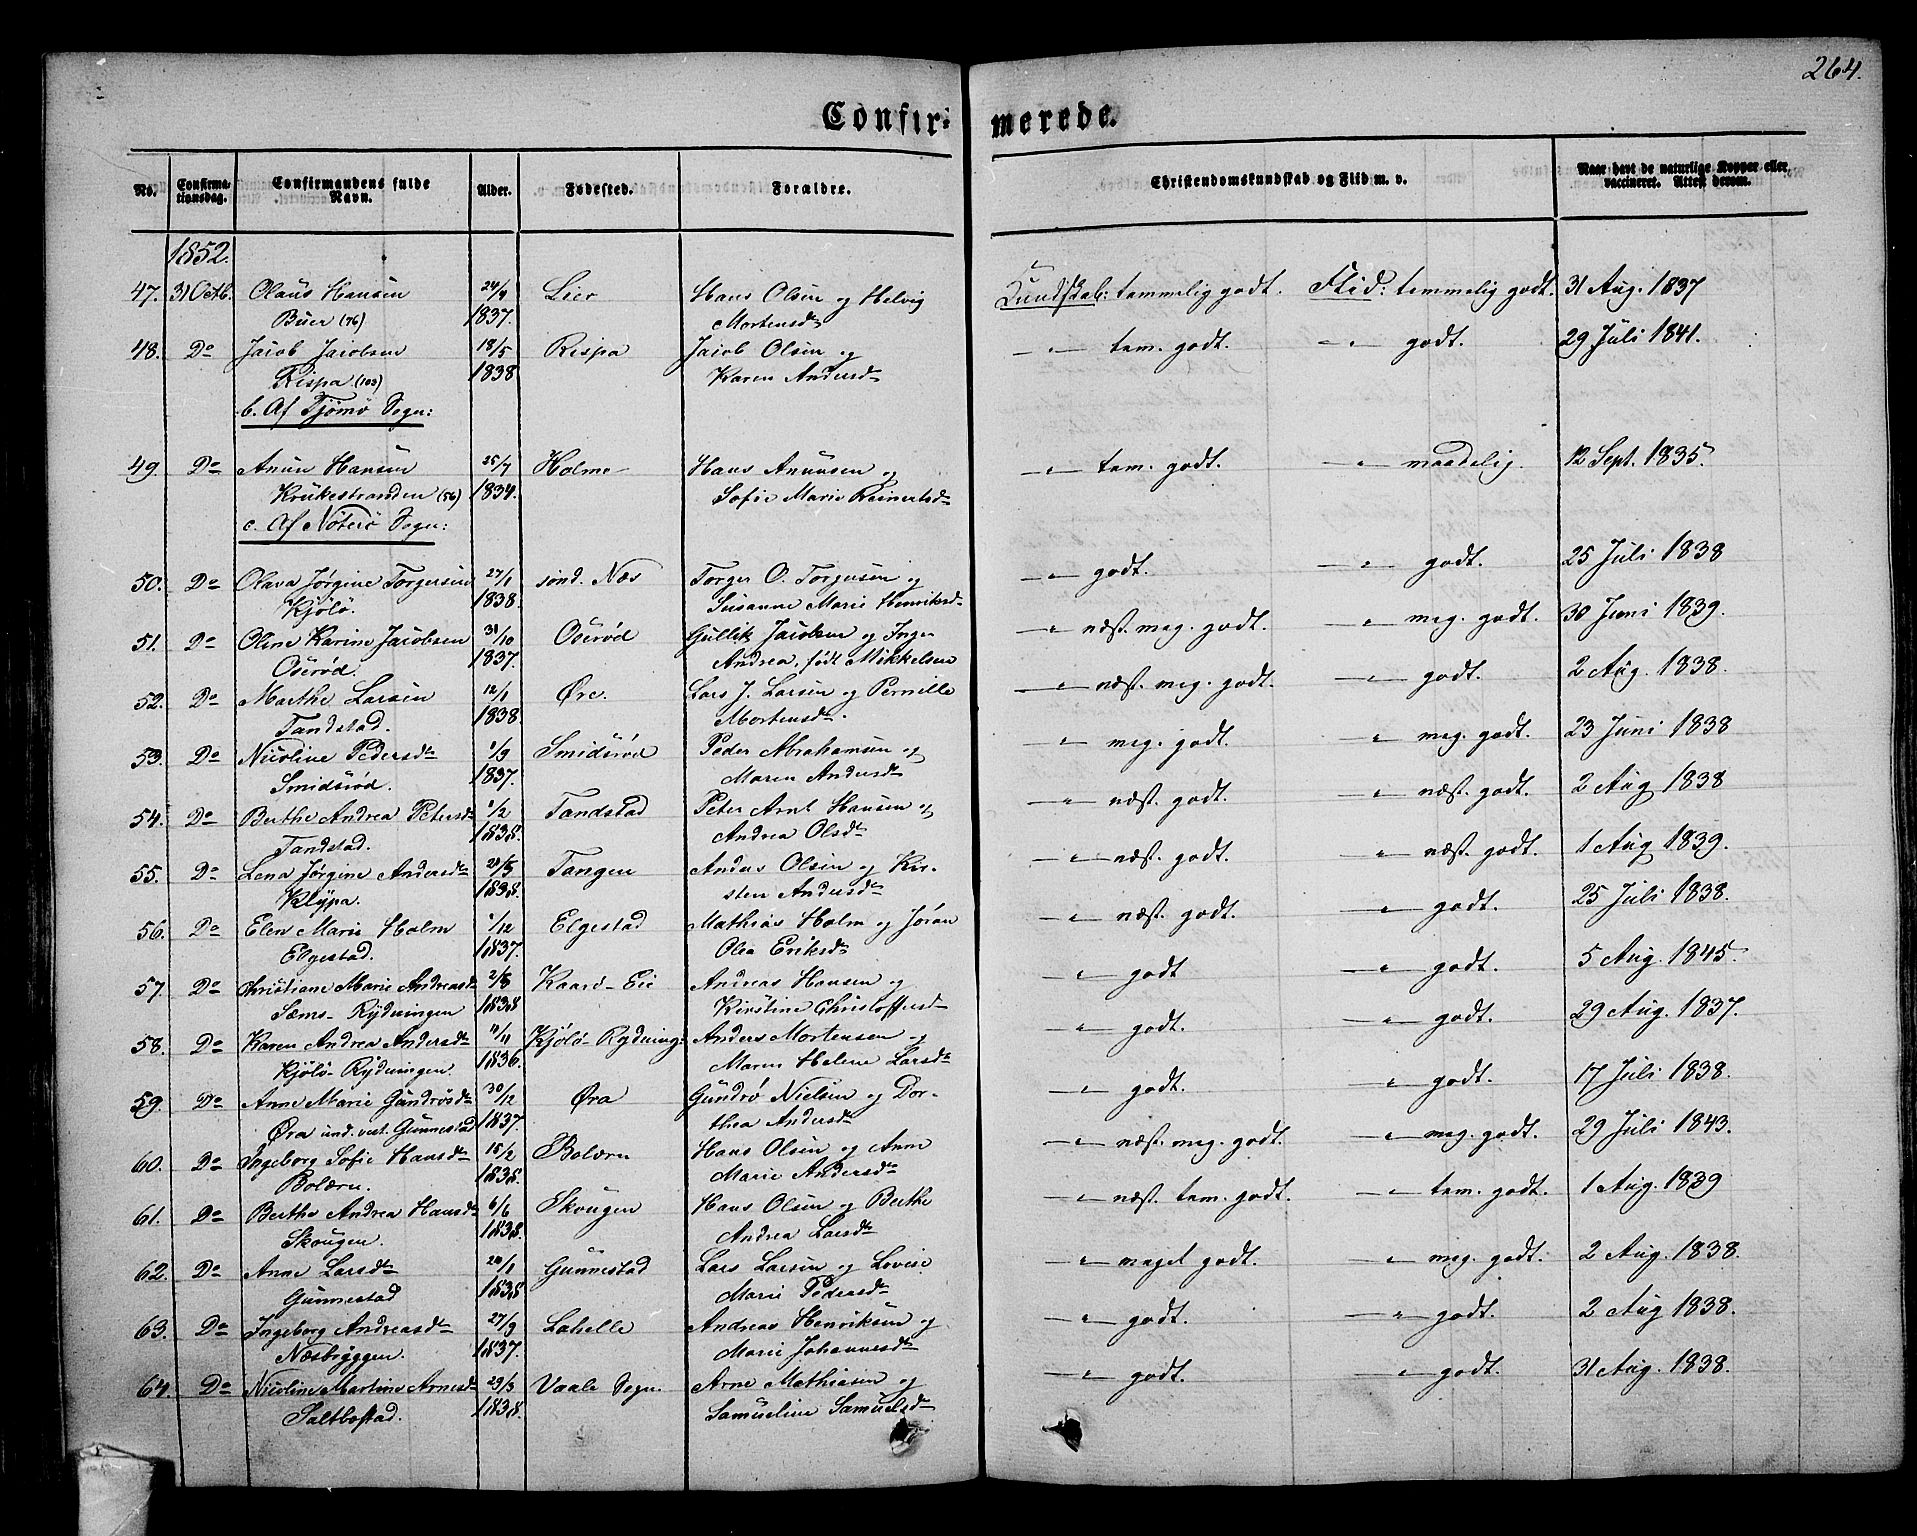 264.
Confir- merede.
No. Confirmationsdag. Confirmandens fulde Navn. Alder. Fødested. Forældre. Christendomskundskab og Flid m. v. Naar havt de naturlige Kopper eller vaccineret. Attest derom.
1852.
47. 31 Octb. Olaus Hansen 24/4 Lier Hans Olsen og Helvig Kundskab: temmelig godt. Flid: temmelig godt. 31 Aug. 1837
Buer (76) 1837. Mortensdr
48. Do Jacob Jacobsen 18/5 Rispa Jacob Olsen og —"— tem. godt. —"— godt. 29 Juli 1841.
Rispa. (103) 1838 Karen Andersdr
b. Af Tjømø Sogn:
49. Do Anun Hansen 25/7 Holme Hans Anunsen og —"— tem. godt. —"— maadelig. 12 Sept. 1835.
Krukestranden (56) 1834. Sofie Marie Reinertsdr
c. Af Nøterø Sogn:
50. Do Olava Jørgine Torgersen 27/1 sønd. Næs Torger O. Torgersen og —"— godt. —"— godt. 25 Juli 1838
Kjøløe. 1838. Susanne Marie Henriksdr
51. Do Oline Karine Jacobsen 31/10 Oserød Gullik Jacobsen og Inger —"— næst. meg. godt. —"— meg. godt. 30 Juni 1839.
Oserød. 1837. Andrea, født Mikkelsen
52. Do Marthe Larsen 12/1 Øre. Lars J. Larsen og Pernille —"— næst. meg. godt. —"— godt. 2 Aug. 1838.
Tandstad. 1838. Mortensdr.
53. Do Nicoline Pedersdr 1/9 Smidsrød Peder Abrahamsen og —"— meg. godt. —"— meg. godt. 23 Juni 1838
Smidsrød. 1837. Maren Andersdr
54. Do Berthe Andrea Petersdr 1/2 Tandstad Peter Arnt Hansen og —"— næst. godt. —"— næst. godt. 2 Aug 1838
Tandstad. 1838. Andrea Olsdr
55. Do Lena Jørgine Andersdr Tangen Anders Olsen og Kir- —"— næst. godt. —"— næst. godt. 1 Aug 1839.
Klypa. 1838. sten Andersdr
56. Do Elen Marie Holm 1/12 Elgestad Mathias Holm og Jøran —"— næst. godt. —"— godt. 25 Juli 1838.
Elgestad. 1837. Olea Eriksdr
57. Do Christiane Marie Andreasdr Kaarø-Eie Andreas Hansen og —"— godt —"— godt. 5 Aug. 1845.
Sæms-Rydningen 1838 Kirstine Christoffersdr
58. Do Karen Andrea Andersdr 11/11 Kjølø-Rydning: Anders Mortensen og —"— godt. —"— godt. 29 Aug. 1837.
Kjølø-Rydningen. 1836. Maren Helene Larsdr
59. Do Anne Marie Gundrøsdr 30/12 Øra Gundrø Nielsen og Dor- —"— godt. —"— godt. 17 Juli 1838.
Øra und. vest. Gunnestad 1837. thea Andersdr
60. Do Ingeborg Sofie Hansdr 15/2 Bolærn Hans Olsen og Anne —"— næst. meg. godt. —"— meg. godt. 29 Juli 1843.
Bolærn. 1838. Marie Andersdr
61. Do Berthe Andrea Hansdr 6/6 Skougen Hans Olsen og Berthe —"— næst. tem. godt. —"— tem. godt. 1 Aug. 1839
Skougen. 1838. Andrea Larsdr
62. Do Anne Larsdr Gunnestad Lars Larsen og Lovise —"— meget godt. —"— meg. godt. 2 Aug. 1838.
Gunnestad 1838 Marie Pedersdr
63. Do Ingeborg Andreasdr 27/9 Lahelle Andreas Henriksen og —"— godt. —"— godt. 2 Aug 1838.
Næsbryggen. 1837. Marie Johannesdr
64. Do Nicoline Martine Arnesdr 29/3 Vaale Sogn. Arne Mathisen og —"— godt. —"— godt. 31 Aug. 1838.
Saltbostad. 1838. Samueline Samuelsdr